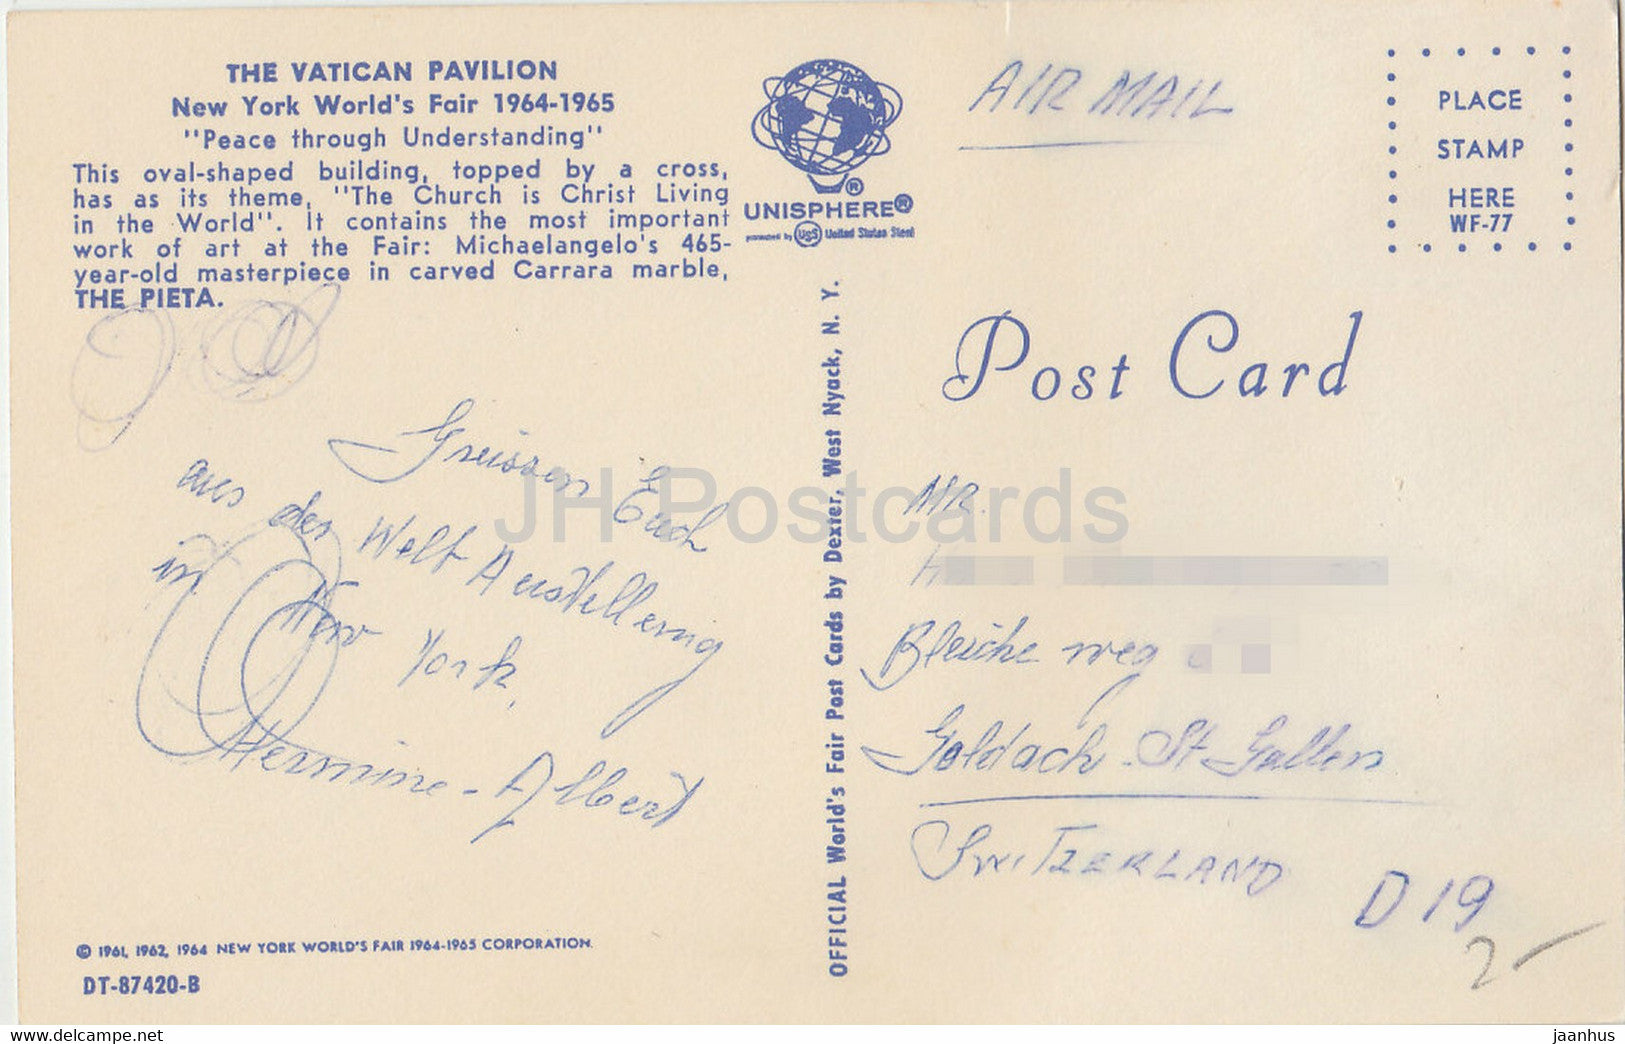 THE VATICAN PAVILION
New York World's Fair 1964-1965
"Peace through Understanding"
This oval-shaped building, topped by a cross,
has as its theme, "The Church is Christ Living
in the World". It contains the most important
work of art at the Fair: Michaelangelo's 465-
year-old masterpiece in carved Carrara marble,
THE PIETA.
UNISPHERE®
presented by USS United States Steel
AIR MAIL
PLACE
STAMP
HERE
WF-77
Post Card
Greissen Euch
aus der Welt Ausstellung
in New
York,
Hermine - Albert
OFFICIAL World's Fair Post Cards by Dexter, West Nyack, N. Y.
MR.
H
Bleiche weg
Goldach - St Gallen
SWITZERLAND
D 19
2-
© 1961, 1962, 1964 NEW YORK WORLD'S FAIR 1964-1965 CORPORATION.
DT-87420-B
JH Postcards
www.delcampe.net
jaanhus